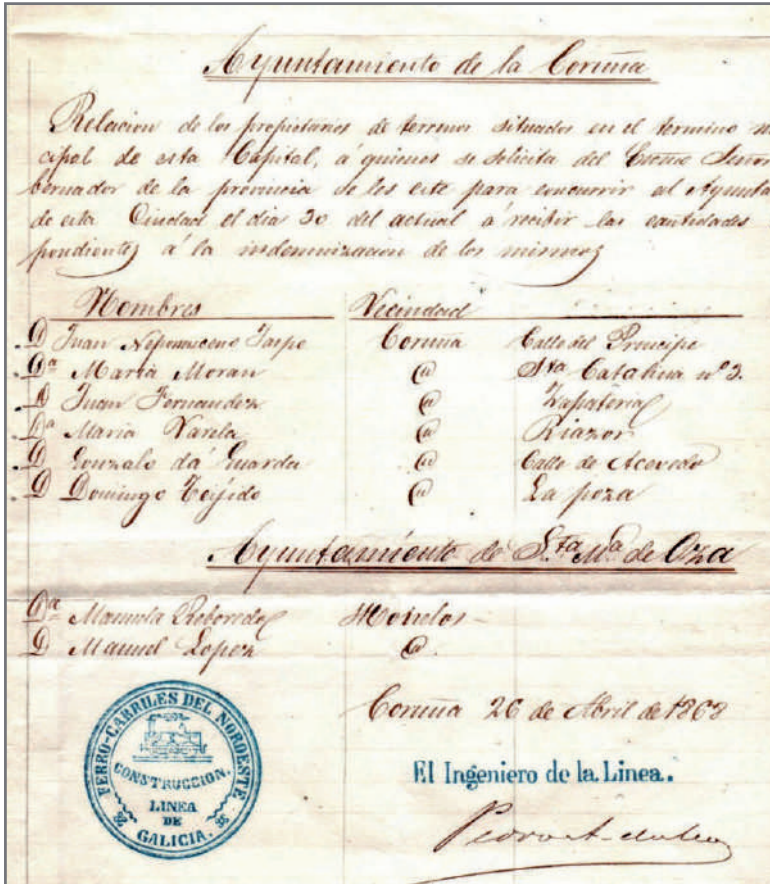 Ayuntamiento de la Coruña
Relacion de los propietarios de terrenos situados en el termino
cipal de esta Capital, á quienes se solicita del Señor
bernador de la provincia se les cite para concurrir al Ayunta
de esta Ciudad el dia 30 del actual á recibir las cantidades
pondientes á la indemnizacion de los mismos
Nombres Vecindad
D Juan Nepomuceno Coruña Calle del Principe
Dª Maria Moran @ Sta Catalina nº 3.
D Juan Fernandez @ Zapateria
Dª Maria Varela @ Riazor
D Gonzalo da Guarda @ Calle de Acevedo
D Domingo Teijido @ La poza
Ayuntamiento de Sta Mª de Oza
Dª Manuela Reboredo Monelos
D Manuel Lopez @
Coruña 26 de Abril de 1868
FERRO-CARRILES DEL NOROESTE
CONSTRUCCION.
LINEA
DE
GALICIA.
El Ingeniero de la Linea.